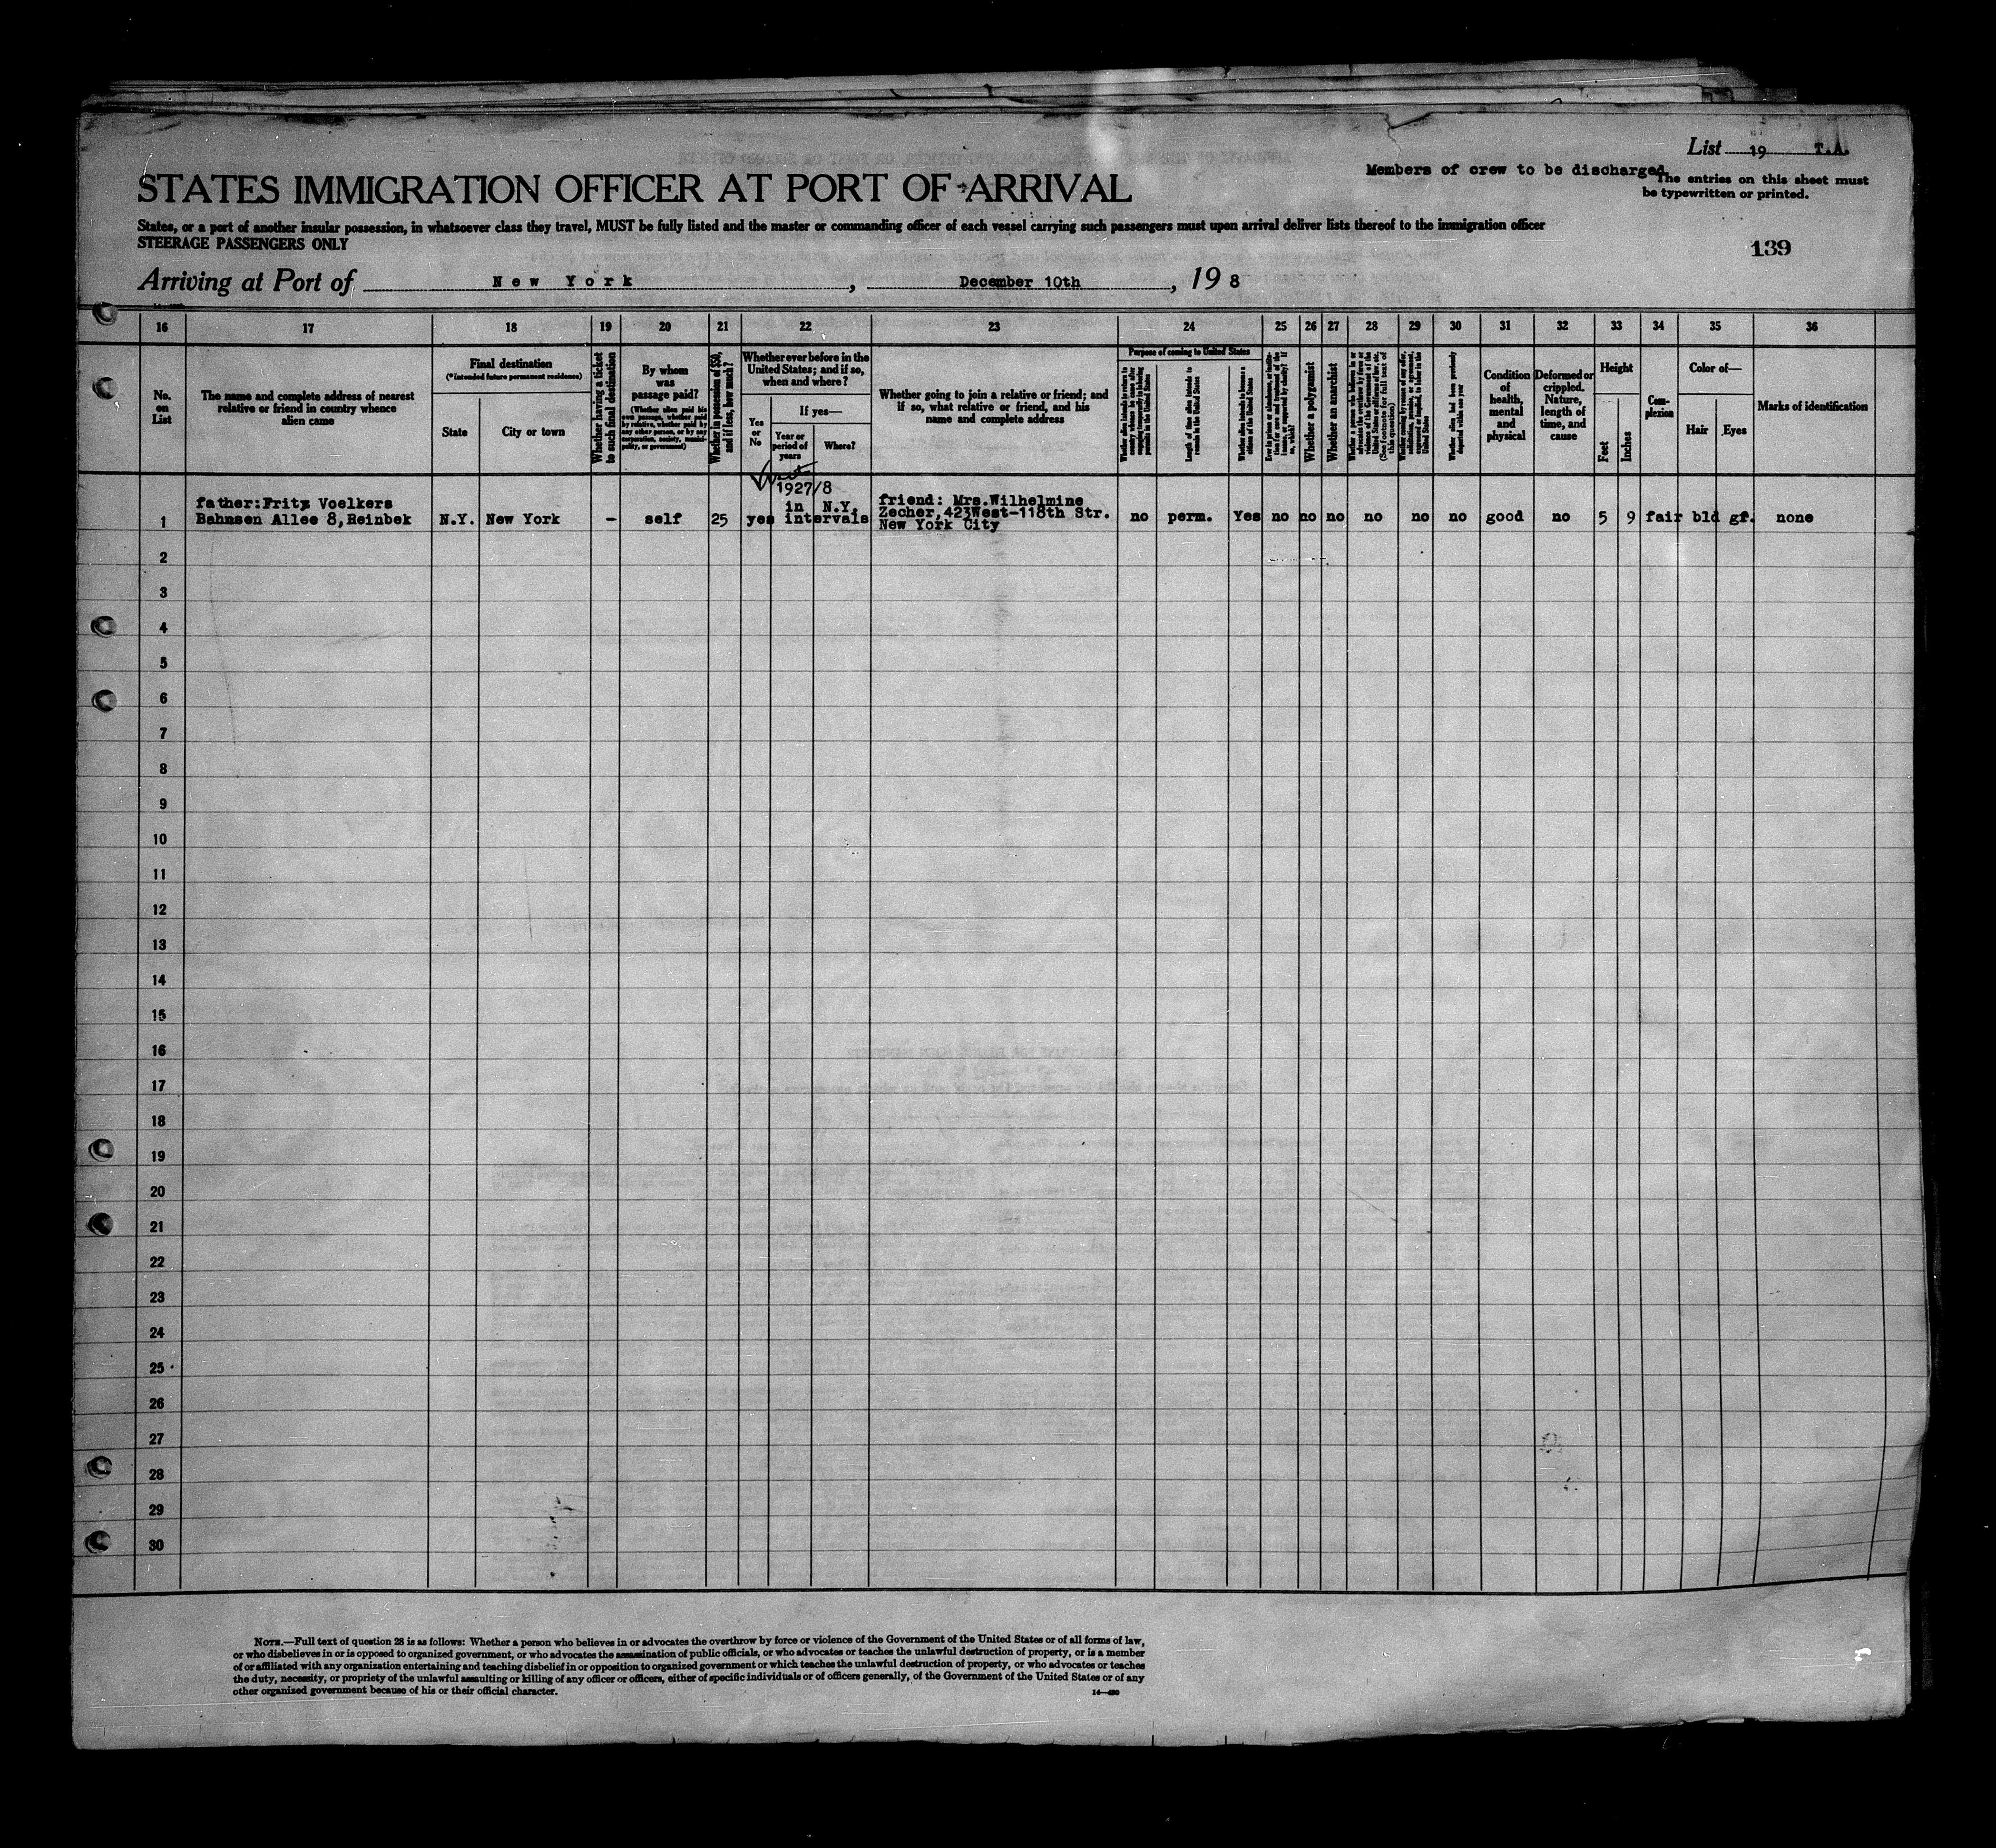 List 19 T.A.
Members of crew to be discharged.
The entries on this sheet must
be typewritten or printed.
STATES IMMIGRATION OFFICER AT PORT OF ARRIVAL
States, or a port of another insular possession, in whatsoever class they travel, MUST be fully listed and the master or commanding officer of each vessel carrying such passengers must upon arrival deliver lists thereof to the immigration officer
STEERAGE PASSENGERS ONLY
139
Arriving at Port of New York, December 10th, 19 8
16 17 18 19 20 21 22 23 24 25 26 27 28 29 30 31 32 33 34 35 36
No.
on
List
The name and complete address of nearest
relative or friend in country whence
alien came
Final destination
(*Intended future permanent residence)
State
City or town
Whether having a ticket
to such final destination
By whom
was
passage paid?
(Whether alien paid his
own passage, whether paid
by relative, whether paid by
any other person, or by any
corporation, society, munici-
pality, or government)
Whether in possession of $50,
and if less, how much?
Whether ever before in the
United States; and if so,
when and where?
Yes
or
No
If yes—
Year or
period of
years
Where?
Whether going to join a relative or friend; and
if so, what relative or friend, and his
name and complete address
Purpose of coming to United States
Length of time alien intends to
remain in the United States
Whether alien intends to become a
citizen of the United States
Whether a polygamist
Whether an anarchist
Whether alien had been previously
deported within one year
Condition
of
health,
mental
and
physical
Deformed or
crippled.
Nature,
length of
time, and
cause
Height
Feet
Inches
Com-
plexion
Color of—
Hair
Eyes
Marks of identification
1
father:Fritz Voelkers
Bahnsen Allee 8,Reinbek
N.Y.
New York
-
self
25
yes
1927/8
in N.Y.
intervals
friend: Mrs.Wilhelmine
Zecher,423West-118th Str.
New York City
no perm. Yes no no no no no no good no 5 9 fair bld gr. none
2
3
4
5
6
7
8
9
10
11
12
13
14
15
16
17
18
19
20
21
22
23
24
25
26
27
28
29
30
NOTE.—Full text of question 28 is as follows: Whether a person who believes in or advocates the overthrow by force or violence of the Government of the United States or of all forms of law,
or who disbelieves in or is opposed to organized government, or who advocates the assassination of public officials, or who advocates or teaches the unlawful destruction of property, or is a member
of or affiliated with any organization entertaining and teaching disbelief in or opposition to organized government or which teaches the unlawful destruction of property, or who advocates or teaches
the duty, necessity, or propriety of the unlawful assaulting or killing of any officer or officers, either of specific individuals or of officers generally, of the Government of the United States or of any
other organized government because of his or their official character.
14—430